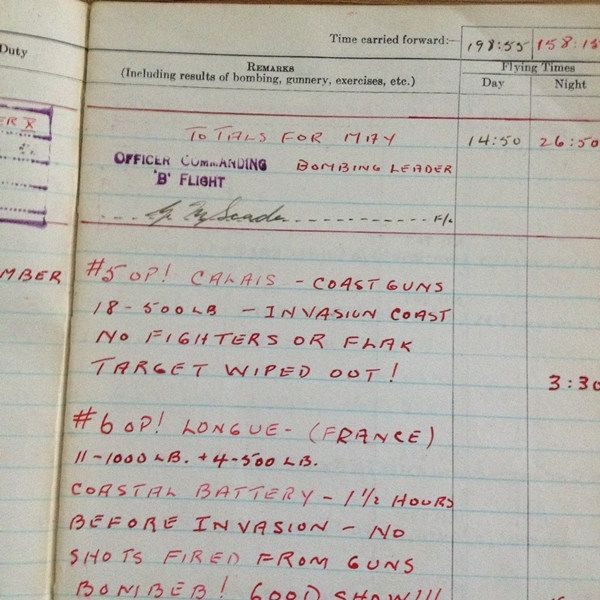 Time carried forward:- 198:55 158:15
Duty
REMARKS
(Including results of bombing, gunnery, exercises, etc.)
Flying Times
Day Night
ER X
TOTALS FOR MAY 14:50 26:50
OFFICER COMMANDING
'B' FLIGHT
BOMBING LEADER
F/L
MBER
#5 OP! CALAIS - COAST GUNS
18-500LB - INVASION COAST
NO FIGHTERS OR FLAK
TARGET WIPED OUT! 3:30
#6 OP! LONGUE- (FRANCE)
11-1000 LB. + 4-500 LB.
COASTAL BATTERY - 1 1/2 HOURS
BEFORE INVASION - NO
SHOTS FIRED FROM GUNS
BOMBED! GOOD SHOW!!!